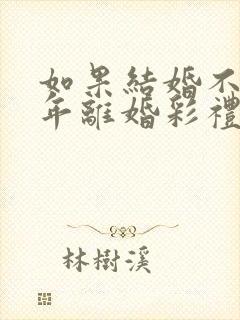 如果結婚不
年離婚彩禮
林樹溪